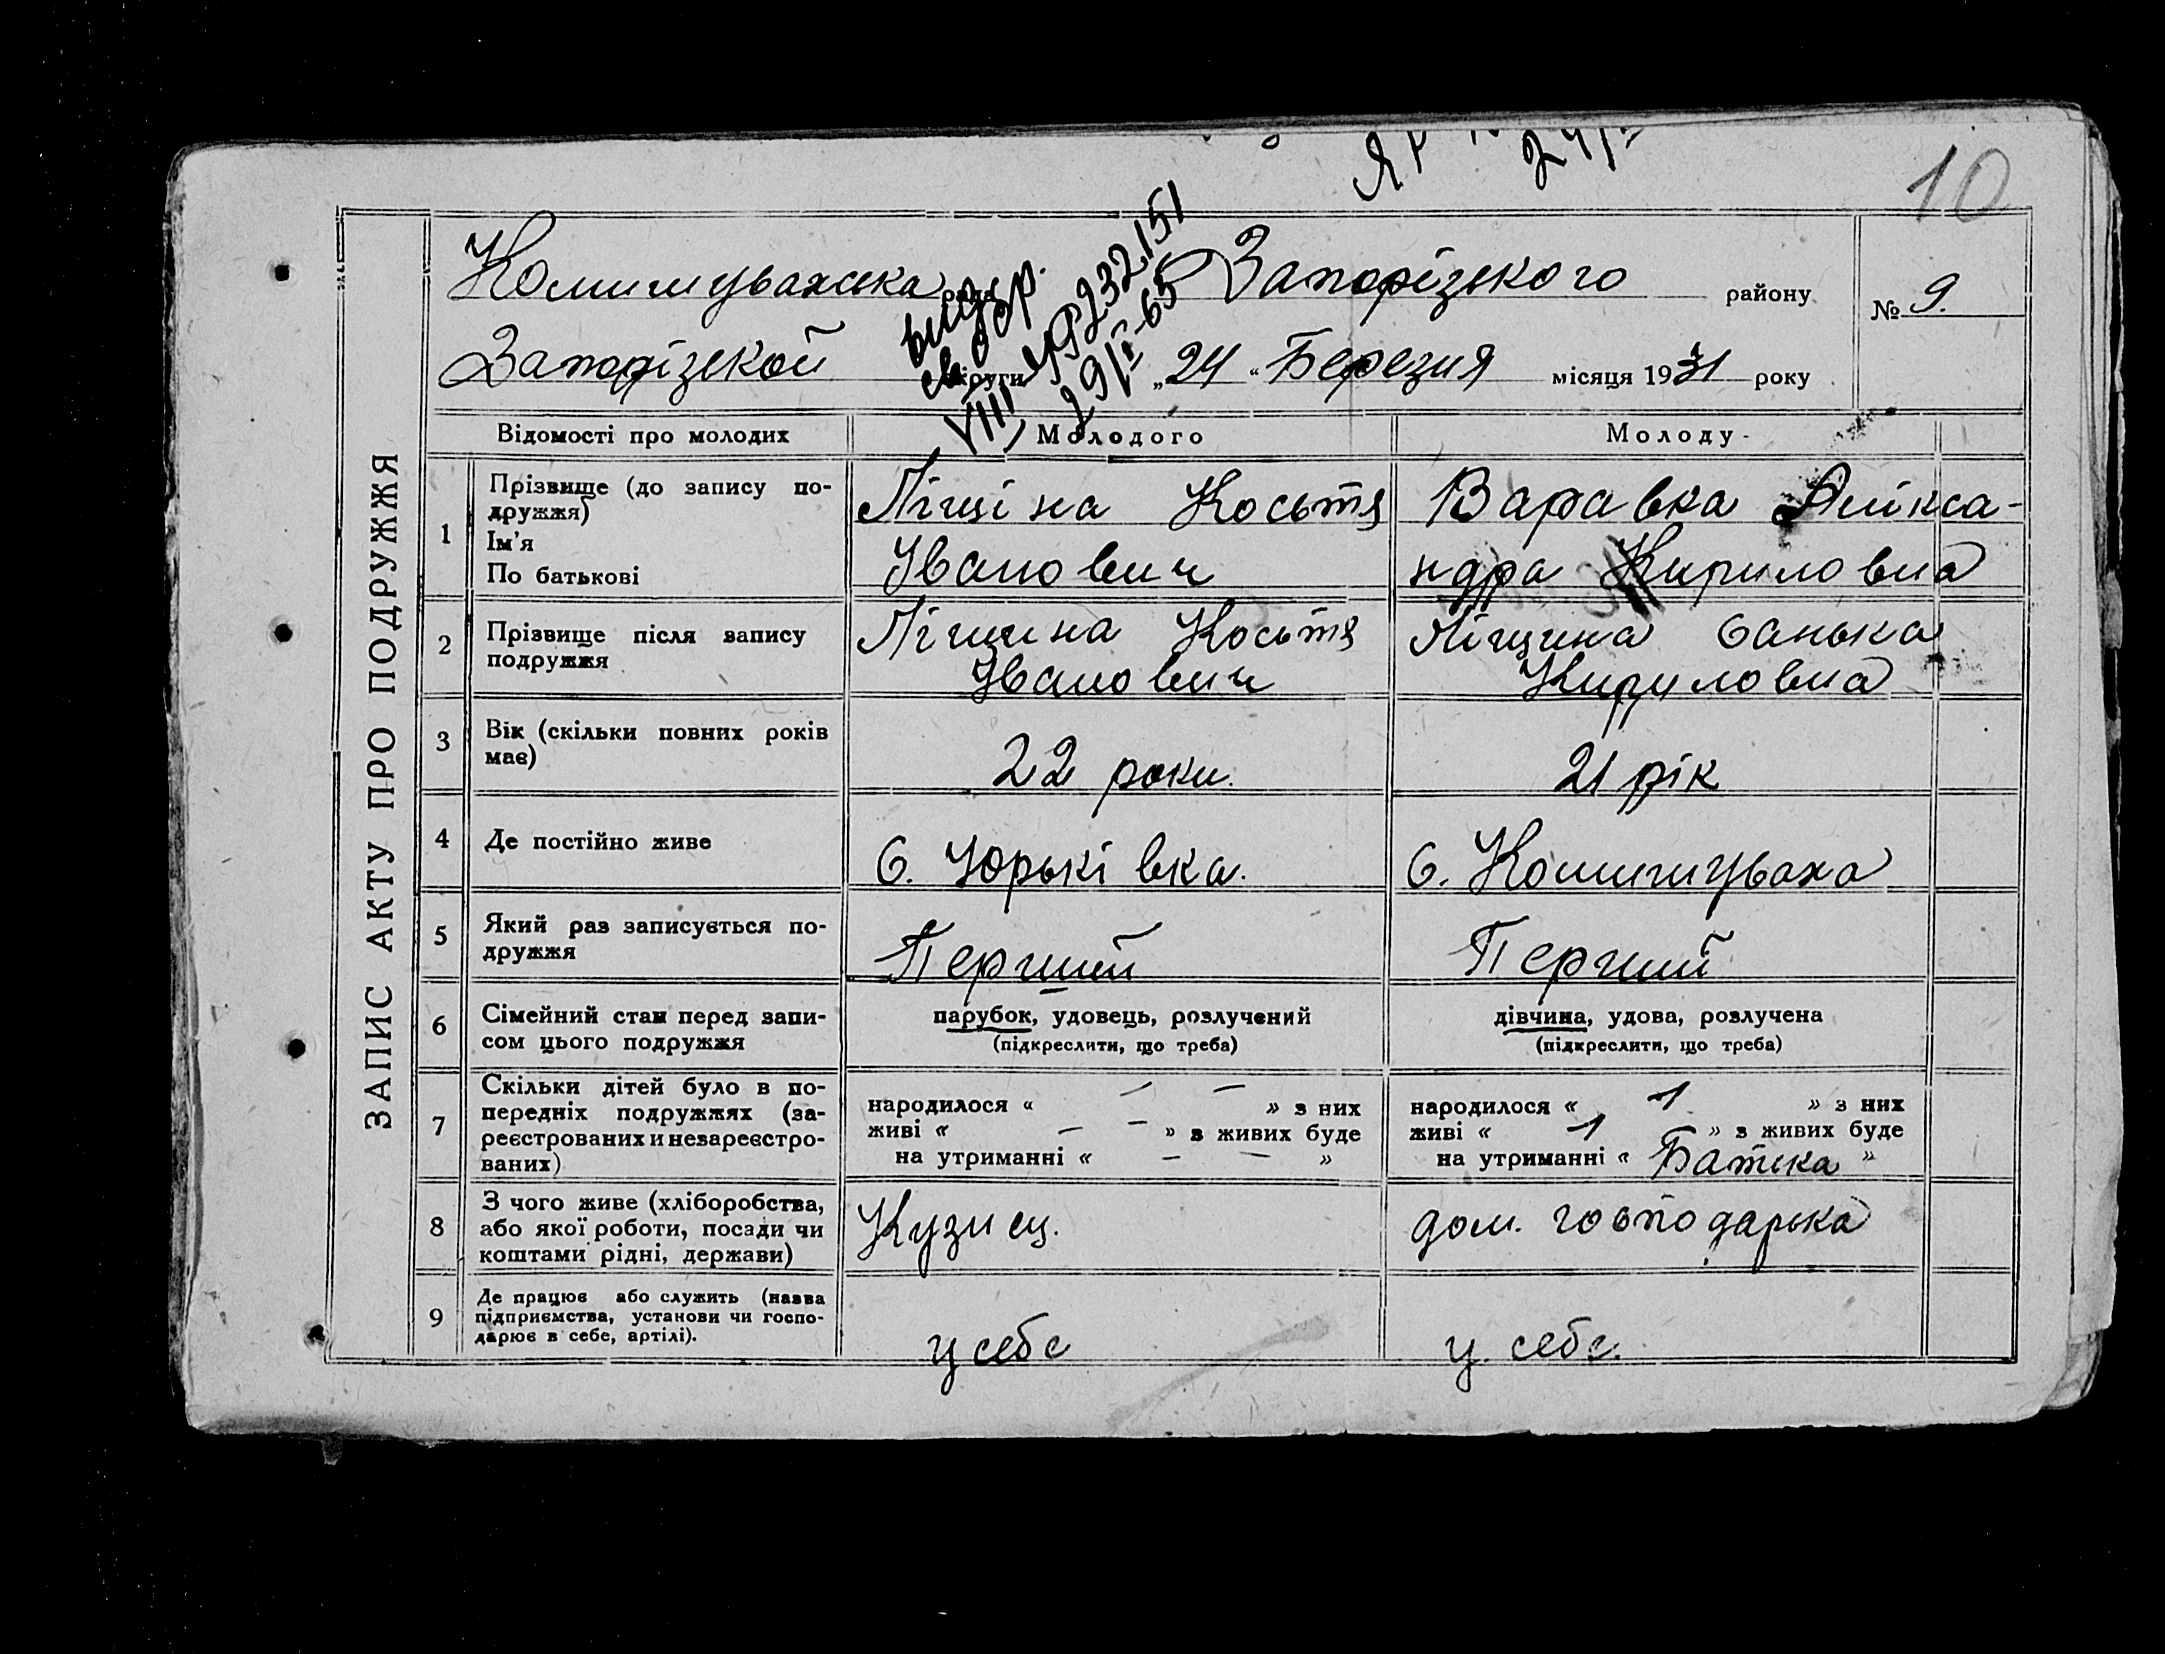 10
Комишувахська рада Запорізского району № 9.
Запорізской округи „24“ Березня місяця 1931 року
видр.
св обр.
VIII ЯР 232151
29/I-65
ЗАПИС АКТУ ПРО ПОДРУЖЖЯ
Відомості про молодих Молодого Молоду
1 Прізвище (до запису по-
дружжя)
Ім'я
По батькові
Піщіна Костя
Іванович
Варавка Алікса-
ндра Кириловна
2 Прізвище після запису
подружжя
Піщина Костя
Іванович
Піщина Санька
Кириловна
3 Вік (скільки повних років
має)
22 роки.
21 рік
4 Де постійно живе
С. Юрьківка.
С. Комишуваха
5 Який раз записується по-
дружжя
Перший
Перший
6 Сімейний стан перед запи-
сом цього подружжя
парубок, удовець, розлучений
(підкреслити, що треба)
дівчина, удова, розлучена
(підкреслити, що треба)
7 Скільки дітей було в по-
передніх подружжях (за-
реєстрованих и незареєстро-
ваних)
народилося « — — » з них
живі « — — » з живих буде
на утриманні « — — »
народилося « 1 » з них
живі « 1 » з живих буде
на утриманні « Батька »
8 З чого живе (хліборобства,
або якої роботи, посади чи
коштами рідні, держави)
Кузнец.
дом. господарька
9 Де працює або служить (назва
підприємства, установи чи госпо-
дарює в себе, артілі).
у себе
у себе.